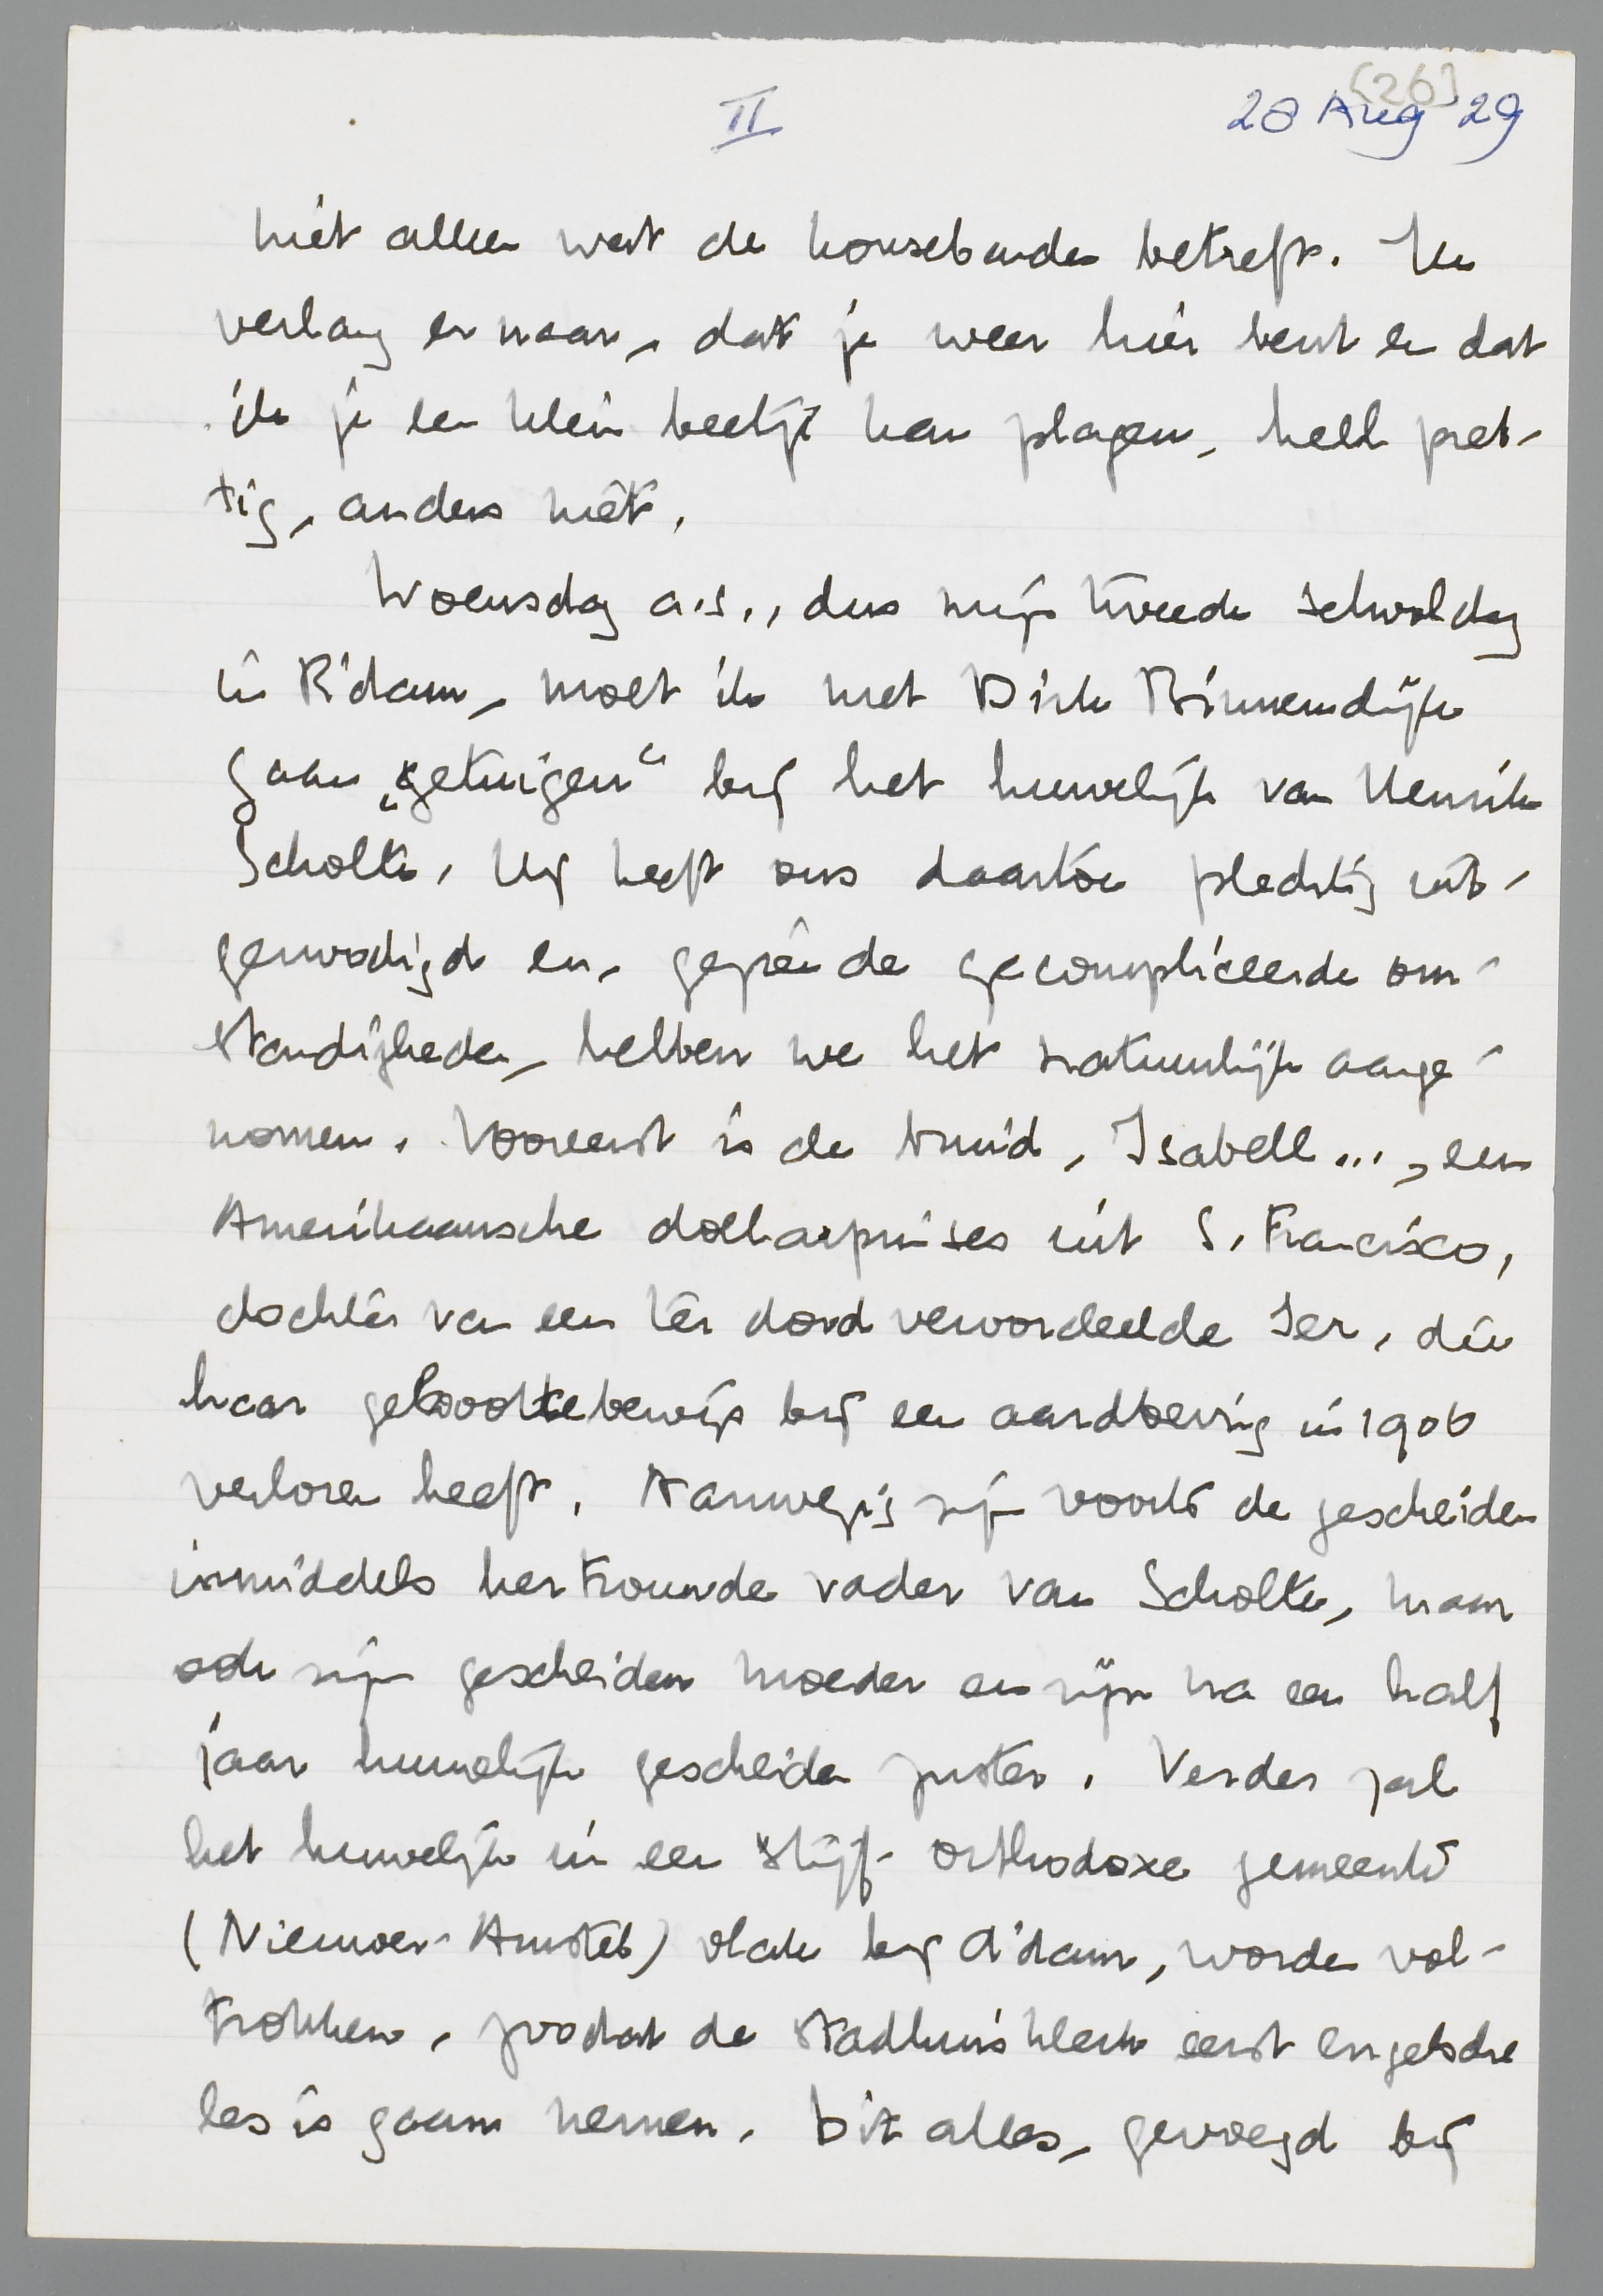 [26]
II 28 Aug '29
niet alleen wat de kousebanden betreft. Ik
verlang er naar, dat je weer hier bent en dat
ik je een klein beetje kan plagen, heel pret-
tig, anders niet.
Woensdag a.s., dus mijn tweede schooldag
in R'dam, moet ik met Dirk Binnendijk
gaan „getuigen“ bij het huwelijk van Henrik
Scholte. Hij heeft ons daartoe plechtig uit-
genoodigd en, gezien de gecompliceerde om-
standigheden, hebben we het natuurlijk aange-
nomen. Vooreerst is de bruid, Isabell..., een
Amerikaansche dollarprinses uit S. Francisco,
dochter van een ter dood veroordeelde Ier, die
haar geboortebewijs bij een aardbeving in 1906
verloren heeft. Aanwezig zijn voorts de gescheiden
inmiddels hertrouwde vader van Scholte, maar
ook zijn gescheiden moeder en zijn na een half
jaar huwelijk gescheiden zuster. Verder zal
het huwelijk in een stijf-orthodoxe gemeente
(Nieuwer-Amstel) vlak bij A'dam, worden vol-
trokken, zoodat de stadhuisklerk eerst engelsche
les is gaan nemen. Dit alles, gevoegd bij